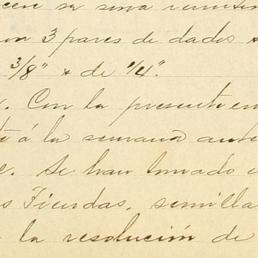 se sina
on 3 pares de dados
3/8" y de 1/4".
Con la presente
á la semana
e. Se han tomado
s Tiendas, semilla
la resolución de